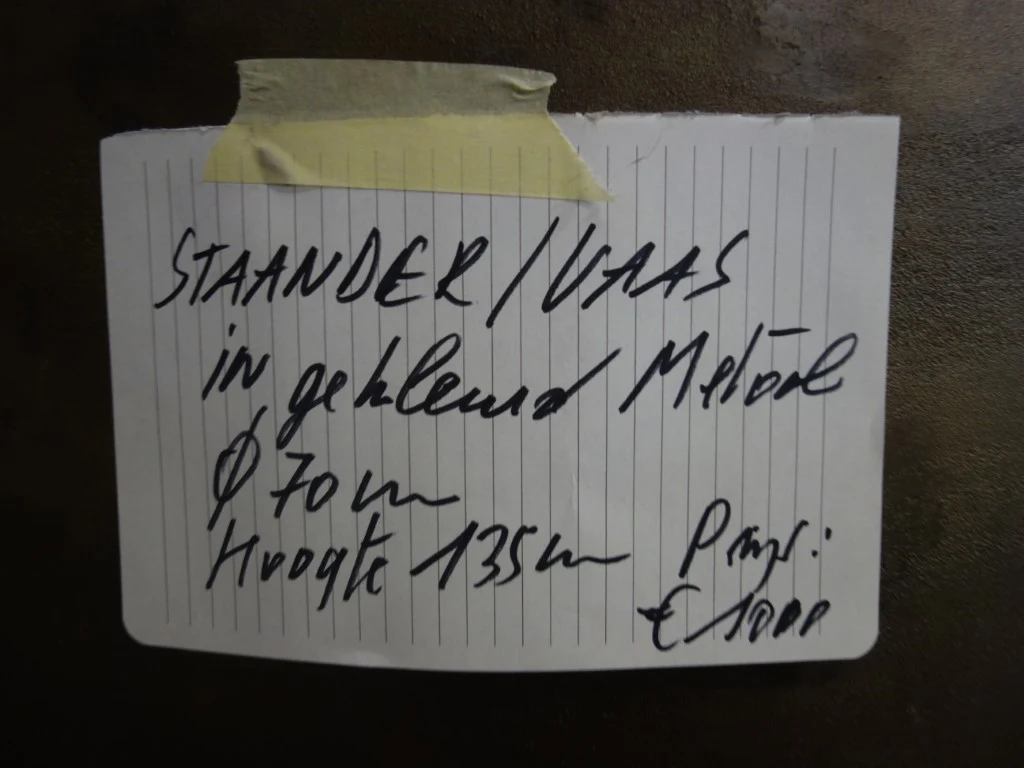 STAANDER / VAAS
in gekleurd Metaal
Ø 70 cm
Hoogte 135 cm Prijs:
€ 1000